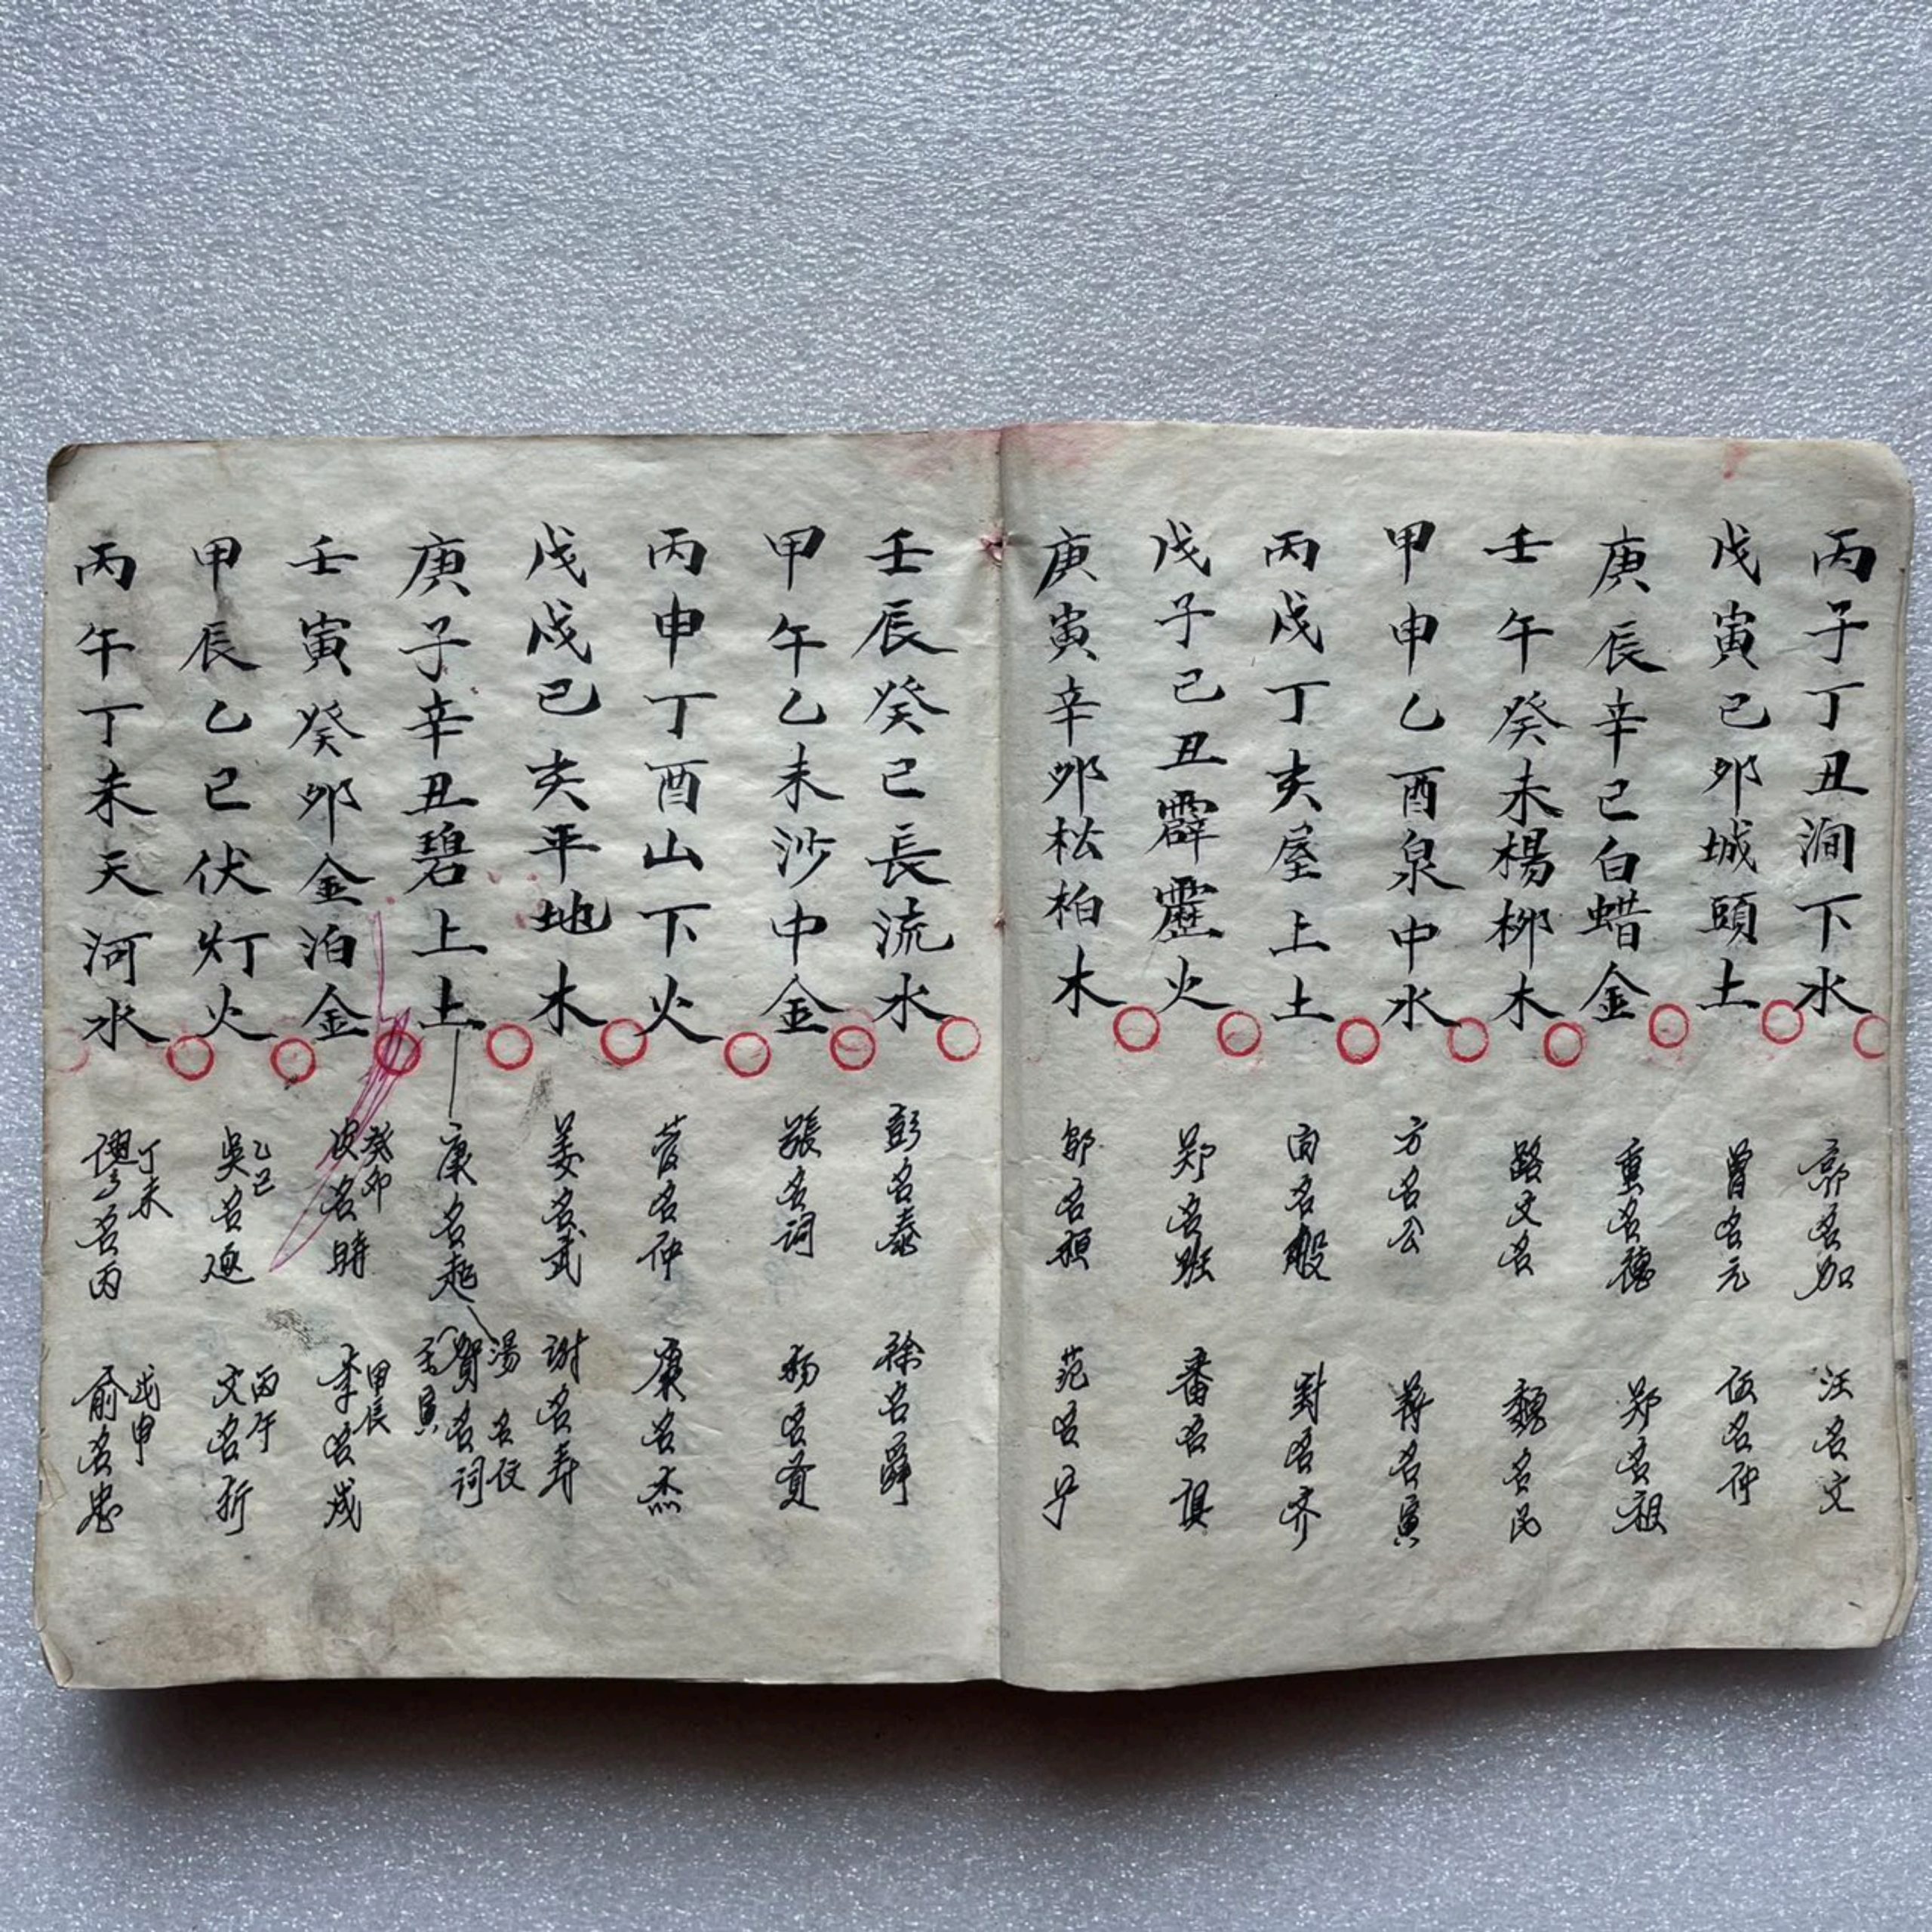 丙子丁丑澗下水
郭名加
汪名文
戊寅己卯城頭土
曾名元
伍名仲
庚辰辛巳白蜡金
重名德
郑名祖
壬午癸未楊柳木
路文名
魏名民
甲申乙酉泉中水
方名公
蒋名寅
丙戌丁亥屋上土
向名般
封名齐
戊子己丑霹靂火
郑名班
番名俱
庚寅辛卯松柏木
鄔名桓
范名宁
壬辰癸巳長流水
彭名泰
徐名舜
甲午乙未沙中金
張名詞
杨名貢
丙申丁酉山下火
管名仲
康名杰
戊戌己亥平地木
姜名武
謝名寿
庚子辛丑碧上土
康名起
湯名仪
賀名詞
壬寅
壬寅癸卯金泊金
癸卯
皮名時
甲辰
李名成
甲辰乙巳伏灯火
乙巳
吳名遂
丙午
文名折
丙午丁未天河水
丁未
名丙
戊申
俞名忠